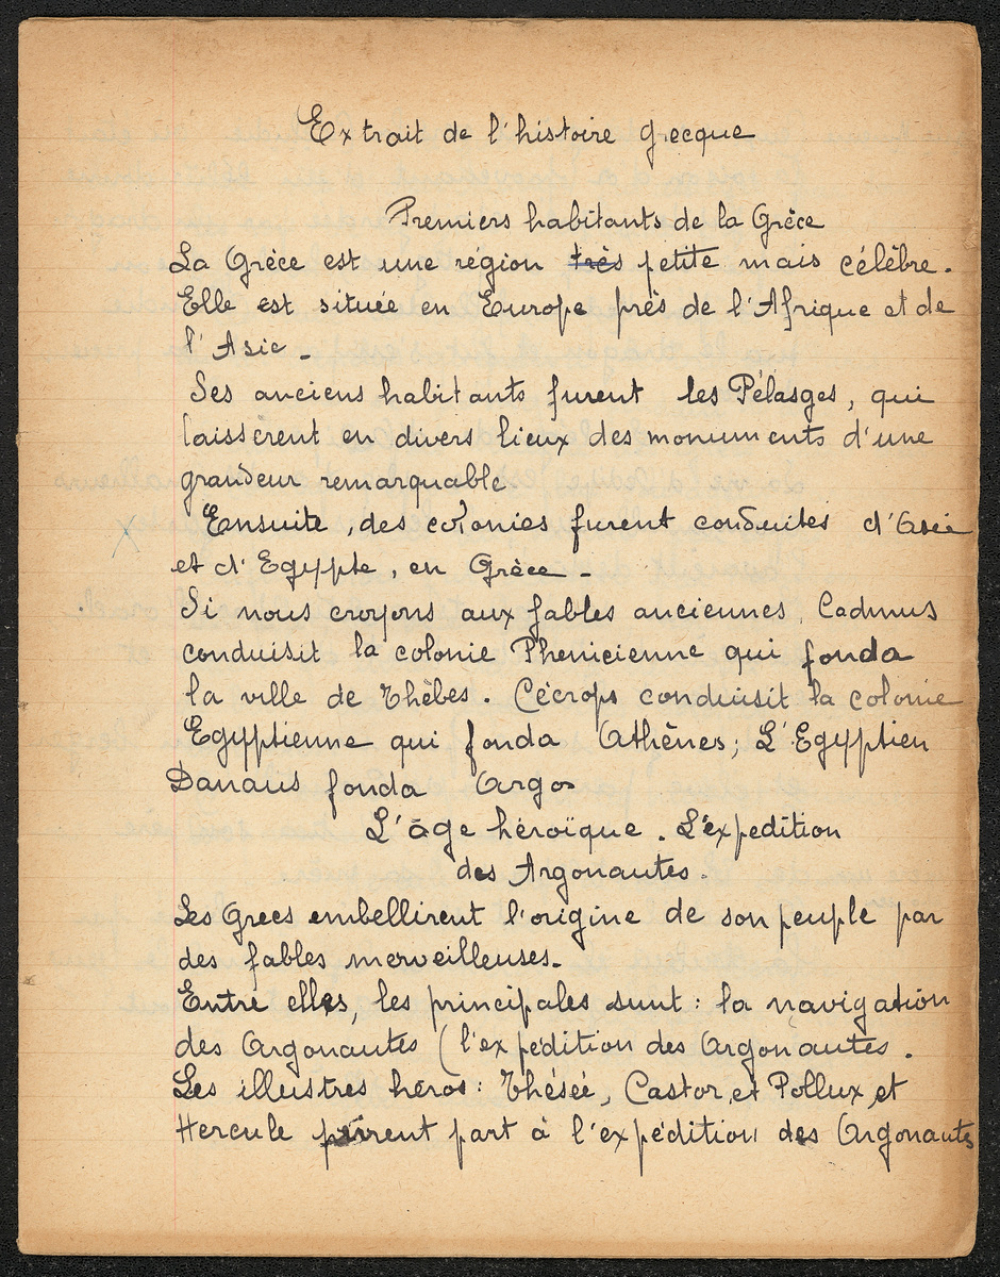 Extrait de l'histoire grecque
Premiers habitants de la Grèce
La Grèce est une région très petite mais célèbre.
Elle est située en Europe près de l'Afrique et de
l'Asie.
Ses anciens habitants furent les Pélasges, qui
laissèrent en divers lieux des monuments d'une
grandeur remarquable
Ensuite, des colonies furent conduites d'Asie
et d'Egypte, en Grèce.
Si nous croyons aux fables anciennes, Cadmus
conduisit la colonie Phenicienne qui fonda
la ville de Thèbes. Cécrops conduisit la colonie
Egyptienne qui fonda Athènes; L'Egyptien
Danaus fonda Argos
L'âge héroïque. L'éxpedition
des Argonautes.
Les Grecs embellirent l'origine de son peuple par
des fables merveilleuses.
Entre elles, les principales sunt : la navigation
des Argonautes (l'expédition des Argonautes.
Les illustres héros : Thésée, Castor, et Pollux, et
Hercule prirent part à l'expédition des Argonautes